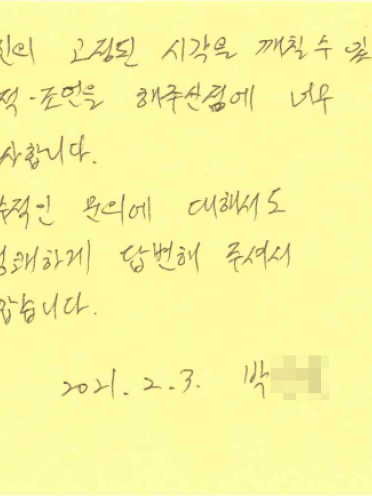 신의 고정된 시각을 깨칠 수 있
적·조언을 해주신점에 너무
사합니다.
수적인 문의에 대해서도
쾌하게 답변해 주셔서
맙습니다.
2021. 2. 3. 박